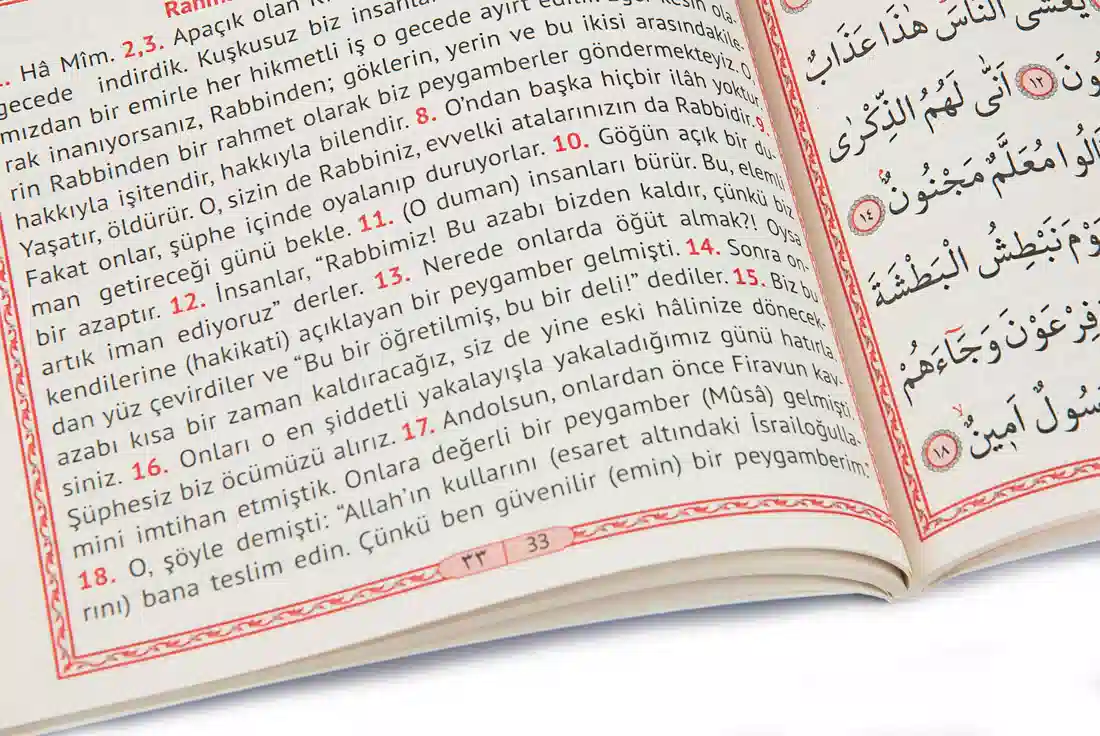 Rahm
Hâ Mîm. 2,3. Apaçık olan
gecede indirdik. Kuşkusuz biz
mızdan bir emirle her hikmetli iş o gecede ayırt
rak inanıyorsanız, Rabbinden; göklerin, yerin ve bu ikisi arasındakile-
rin Rabbinden bir rahmet olarak biz peygamberler göndermekteyiz. O,
hakkıyla işitendir, hakkıyla bilendir. 8. O'ndan başka hiçbir ilâh yoktur.
Yaşatır, öldürür. O, sizin de Rabbiniz, evvelki atalarınızın da Rabbidir. 9.
Fakat onlar, şüphe içinde oyalanıp duruyorlar. 10. Göğün açık bir du-
man getireceği günü bekle. 11. (O duman) insanları bürür. Bu, elemli
bir azaptır. 12. İnsanlar, "Rabbimiz! Bu azabı bizden kaldır, çünkü biz
artık iman ediyoruz" derler. 13. Nerede onlarda öğüt almak?! Oysa
kendilerine (hakikati) açıklayan bir peygamber gelmişti. 14. Sonra on-
dan yüz çevirdiler ve "Bu bir öğretilmiş, bu bir deli!" dediler. 15. Biz bu
azabı kısa bir zaman kaldıracağız, siz de yine eski hâlinize dönecek-
siniz. 16. Onları o en şiddetli yakalayışla yakaladığımız günü hatırla.
Şüphesiz biz öcümüzü alırız. 17. Andolsun, onlardan önce Firavun kav-
mini imtihan etmiştik. Onlara değerli bir peygamber (Mûsâ) gelmişti.
18. O, şöyle demişti: "Allah'ın kullarını (esaret altındaki İsrailoğulla-
rını) bana teslim edin. Çünkü ben güvenilir (emin) bir peygamberim."
٣٣ 33
يَغْشَى النَّاسَ هٰذَا عَذَابٌ
١٢ اَنّٰى لَهُمُ الذِّكْرٰى
مُعَلَّمٌ مَجْنُونٌ ١٤
نَبْطِشُ الْبَطْشَةَ
فِرْعَوْنَ وَجَٓاءَهُمْ
اَمِينٌ ١٨